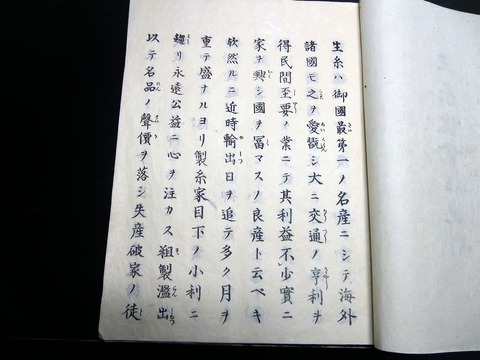 生糸ハ御國最第一ノ名産ニシテ海外
諸國モ之ヲ愛翫シ大ニ交通ノ亨利ヲ
得民間至要ノ業ニテ其利益不少實ニ
家ヲ興シ國ヲ冨マスノ良産ト云ベキ
欤然ルニ近時輸出日ヲ追テ多ク月ヲ
重テ盛ナルヨリ製糸家目下ノ小利ニ
趨リ永遠公益ニ心ヲ注カス粗製濫出
以テ名品ノ聲價ヲ落シ失産破家ノ徒